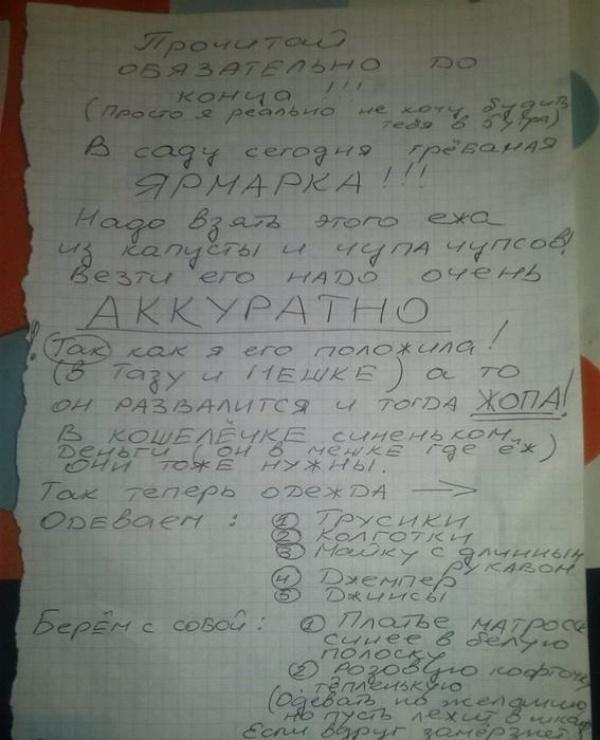 Прочитай
ОБЯЗАТЕЛЬНО ДО
конца !!!
(Просто я реально не хочу будить
тебя в 5 утра)
В саду сегодня грёбаная
ЯРМАРКА!!!
Надо взять этого ежа
из капусты и чупа чупсов!
Везти его надо очень
АККУРАТНО
! Так как я его положила!
(В тазу и мешке) а то
он РАЗВАЛИТСЯ и тогда ЖОПА!
В кошелёчке синеньком
деньги (он в мешке где ёж)
они тоже нужны.
Так теперь одежда →
Одеваем: ① Трусики
② Колготки
③ Майку с длинным
рукавом
④ Джемпер
⑤ Джинсы
Берём с собой: ① Платье
синее в белую
полоску
② розовую кофточку
тёпленькую
(Одевать по желанию
но пусть лежит в шкаф
Если вдруг замёрзнет)